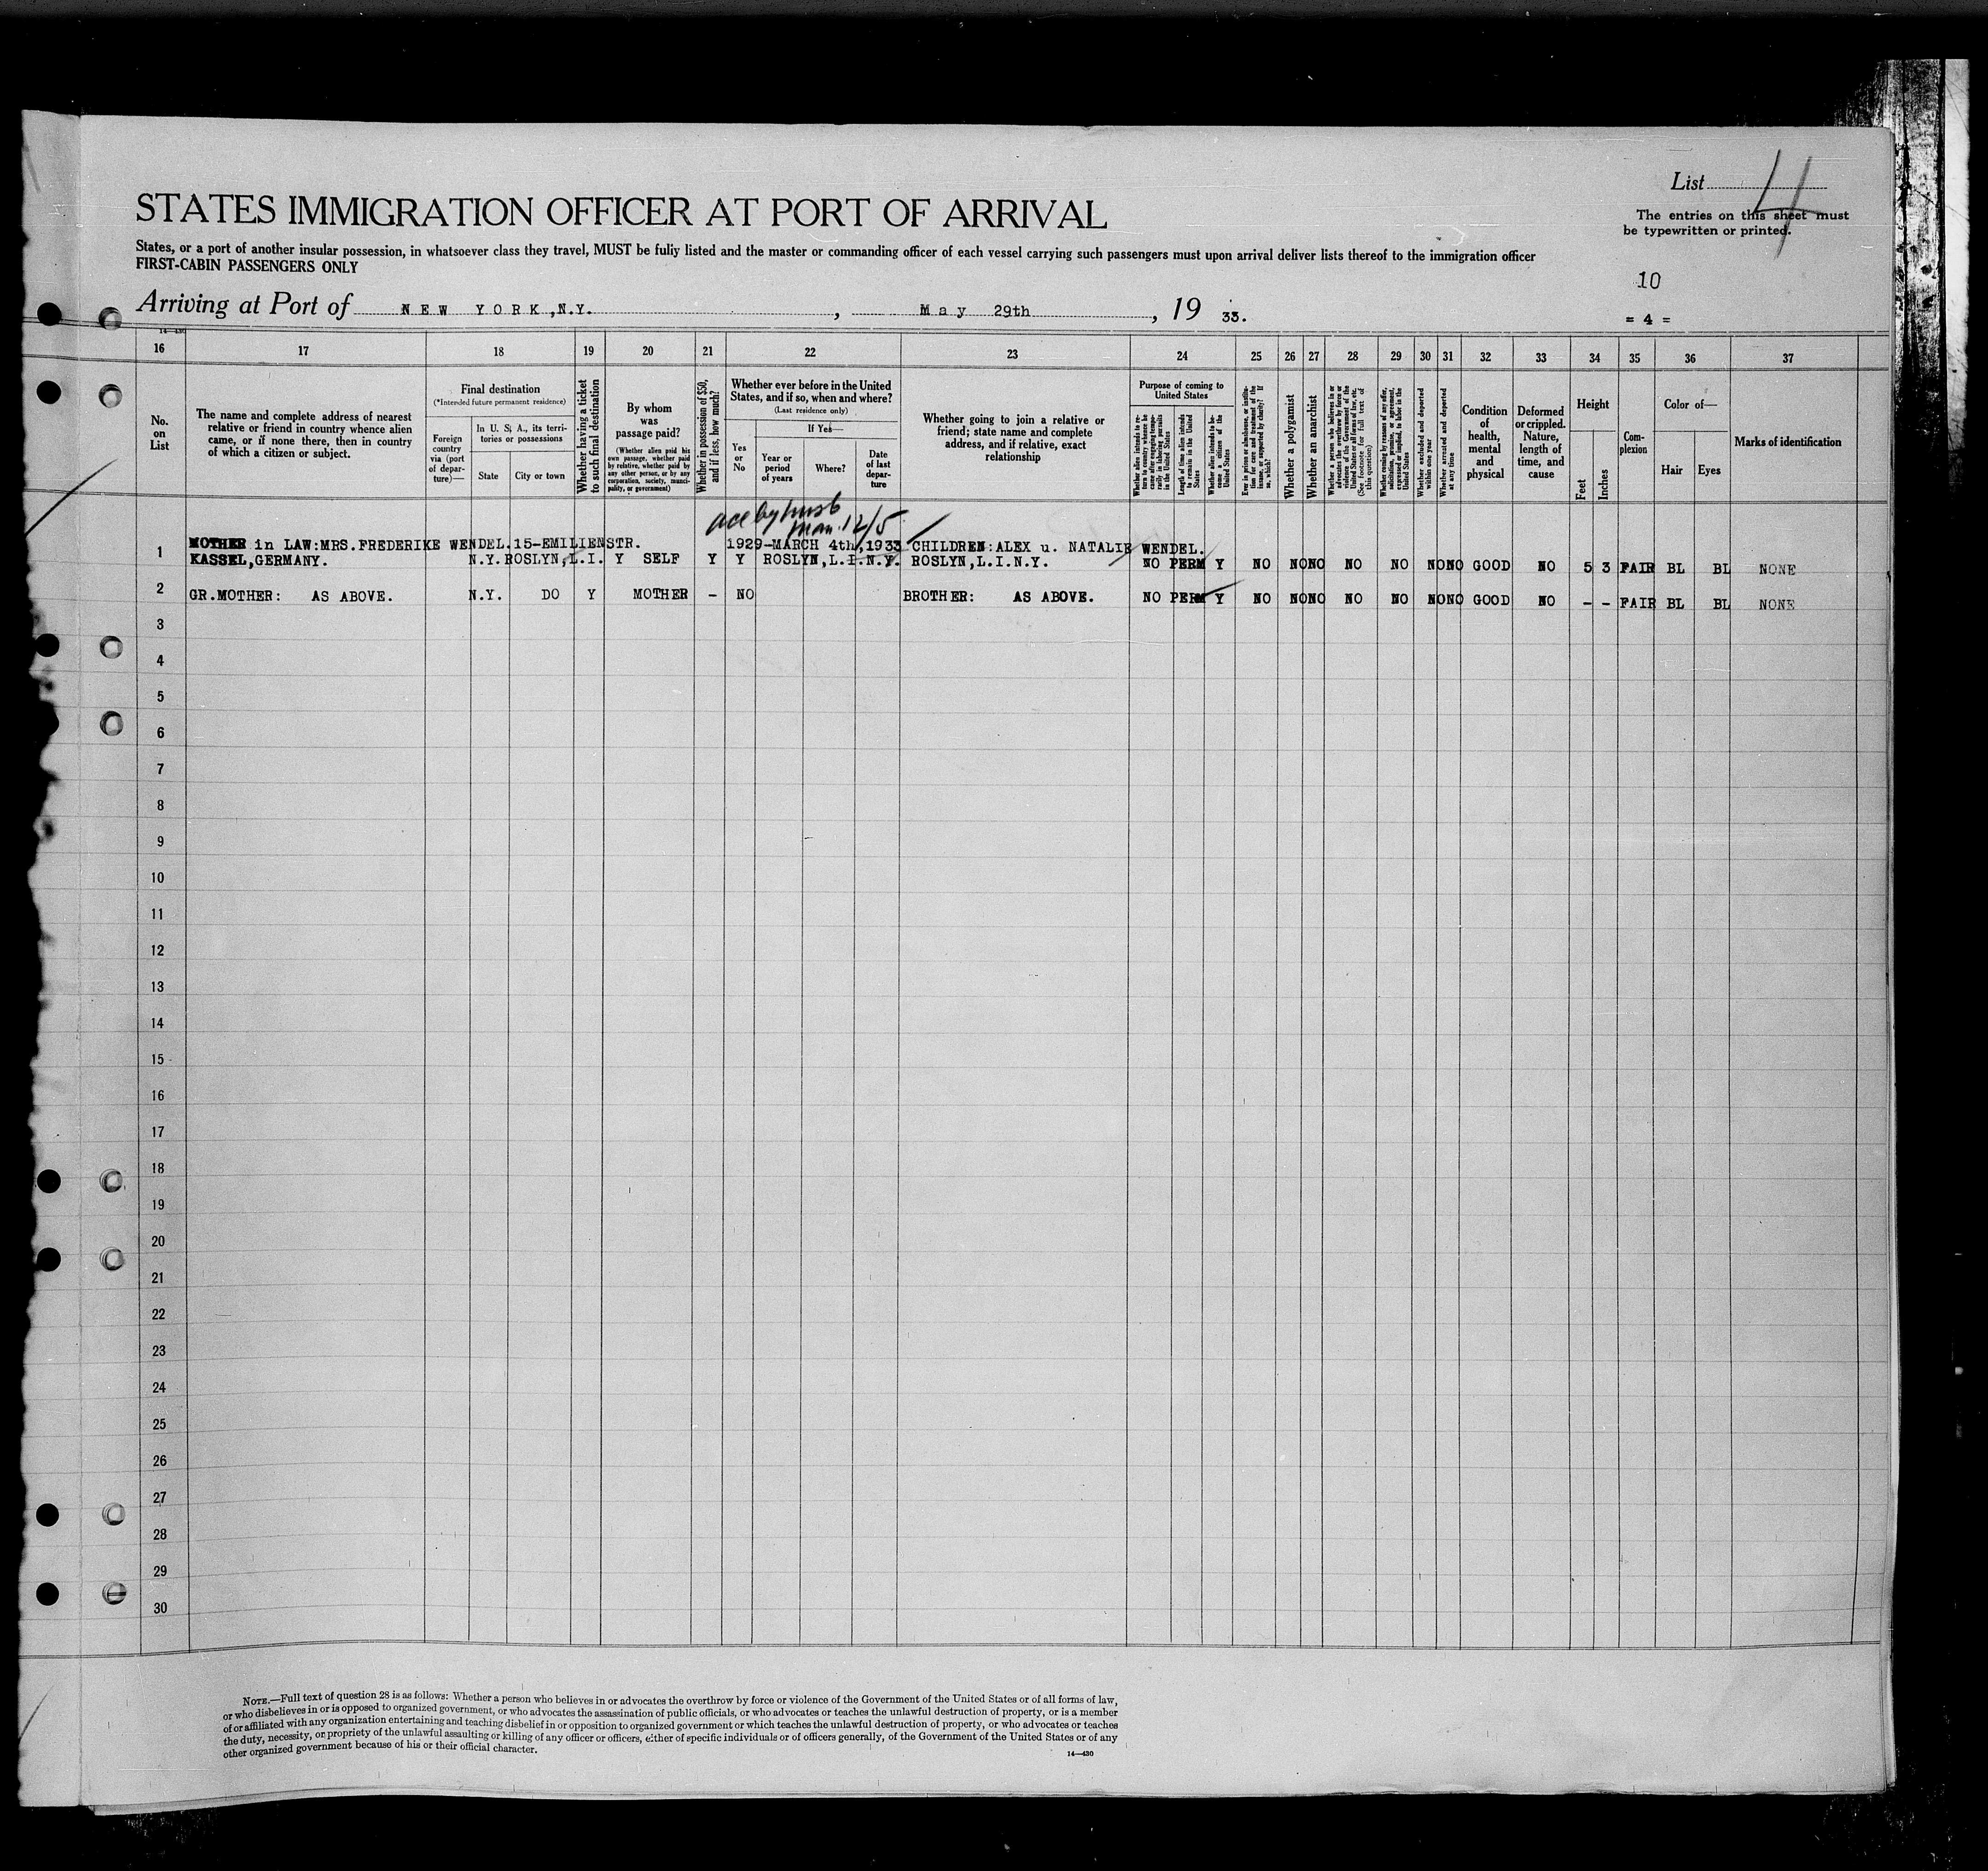 List 4
STATES IMMIGRATION OFFICER AT PORT OF ARRIVAL
The entries on this sheet must
be typewritten or printed.
States, or a port of another insular possession, in whatsoever class they travel, MUST be fully listed and the master or commanding officer of each vessel carrying such passengers must upon arrival deliver lists thereof to the immigration officer
FIRST-CABIN PASSENGERS ONLY
10
Arriving at Port of NEW YORK, N.Y. , May 29th , 19 33.
= 4 =
14—430
16 17 18 19 20 21 22 23 24 25 26 27 28 29 30 31 32 33 34 35 36 37
No. on List
The name and complete address of nearest relative or friend in country whence alien came, or if none there, then in country of which a citizen or subject.
Final destination
(*Intended future permanent residence)
Foreign country via (port of departure)—
In U. S. A., its territories or possessions
State
City or town
Whether having a ticket to such final destination
By whom was passage paid?
(Whether alien paid his own passage, whether paid by relative, whether paid by any other person, or by any corporation, society, municipality, or government)
Whether in possession of $50, and if less, how much?
Whether ever before in the United States, and if so, when and where?
(Last residence only)
Yes or No
If Yes—
Year or period of years
Where?
Date of last departure
Whether going to join a relative or friend; state name and complete address, and if relative, exact relationship
Purpose of coming to United States
Whether alien intends to return to country whence he came after engaging temporarily in laboring pursuits in the United States
Length of time alien intends to remain in the United States
Whether alien intends to become a citizen of the United States
Ever in prison or almshouse, or institution for care and treatment of the insane, or supported by charity? If so, which?
Whether a polygamist
Whether an anarchist
Whether a person who believes in or advocates the overthrow by force or violence of the Government of the United States or all forms of law, etc. (See footnote for full text of this question)
Whether coming by reasons of any offer, solicitation, promise, or agreement, expressed or implied, to labor in the United States
Whether excluded and deported within one year
Whether arrested and deported at any time
Condition of health, mental and physical
Deformed or crippled. Nature, length of time, and cause
Height
Feet
Inches
Complexion
Color of—
Hair
Eyes
Marks of identification
MOTHER in LAW:MRS.FREDERIKE WENDEL.15-EMILIENSTR. 1929-MARCH 4th,1933 CHILDREN:ALEX u. NATALIE WENDEL.
1 KASSEL,GERMANY. N.Y. ROSLYN,L.I. Y SELF Y Y ROSLYN,L.I.N.Y. ROSLYN,L.I.N.Y. NO PERM Y NO NO NO NO NO NO NO GOOD NO 5 3 FAIR BL BL NONE
2 GR.MOTHER: AS ABOVE. N.Y. DO Y MOTHER – NO BROTHER: AS ABOVE. NO PERM Y NO NO NO NO NO NO NO GOOD NO – – FAIR BL BL NONE
3
4
5
6
7
8
9
10
11
12
13
14
15
16
17
18
19
20
21
22
23
24
25
26
27
28
29
30
NOTE.—Full text of question 28 is as follows: Whether a person who believes in or advocates the overthrow by force or violence of the Government of the United States or of all forms of law,
or who disbelieves in or is opposed to organized government, or who advocates the assassination of public officials, or who advocates or teaches the unlawful destruction of property, or is a member
of or affiliated with any organization entertaining and teaching disbelief in or opposition to organized government or which teaches the unlawful destruction of property, or who advocates or teaches
the duty, necessity, or propriety of the unlawful assaulting or killing of any officer or officers, either of specific individuals or of officers generally, of the Government of the United States or of any
other organized government because of his or their official character.
14—430